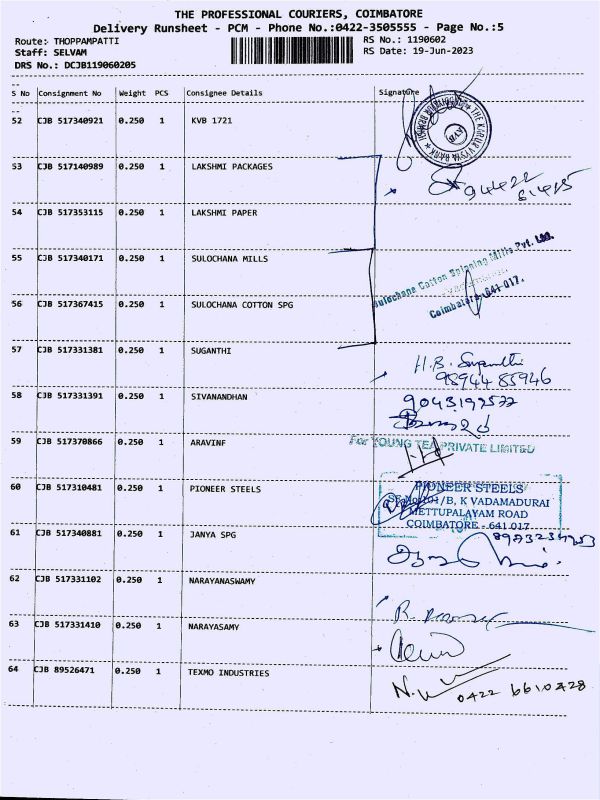 THE PROFESSIONAL COURIERS, COIMBATORE
Delivery Runsheet - PCM - Phone No.:0422-3505555 - Page No.:5
Route: THOPPAMPATTI
RS No.: 1190602
Staff: SELVAM
RS Date: 19-Jun-2023
DRS No.: DCJB119060205
S No Consignment No Weight PCS Consignee Details Signature
52 CJB 517340921 0.250 1 KVB 1721
THE KARUR VYSYA BANK
KVB
53 CJB 517140989 0.250 1 LAKSHMI PACKAGES
94422
61415
54 CJB 517353115 0.250 1 LAKSHMI PAPER
55 CJB 517340171 0.250 1 SULOCHANA MILLS
Sulochana Cotton Spinning Mills Pvt. Ltd.
Coimbatore-641 017.
56 CJB 517367415 0.250 1 SULOCHANA COTTON SPG
57 CJB 517331381 0.250 1 SUGANTHI
H.B. Suganthi
98944 85946
58 CJB 517331391 0.250 1 SIVANANDHAN
9043192577
59 CJB 517370866 0.250 1 ARAVINF
For YOUNG TEA PRIVATE LIMITED
60 CJB 517310481 0.250 1 PIONEER STEELS
PIONEER STEELS
SF No. 101/B, K VADAMADURAI
METTUPALAYAM ROAD
COIMBATORE - 641 017
61 CJB 517340881 0.250 1 JANYA SPG
62 CJB 517331102 0.250 1 NARAYANASWAMY
63 CJB 517331410 0.250 1 NARAYASAMY
64 CJB 89526471 0.250 1 TEXMO INDUSTRIES
0422 6610428